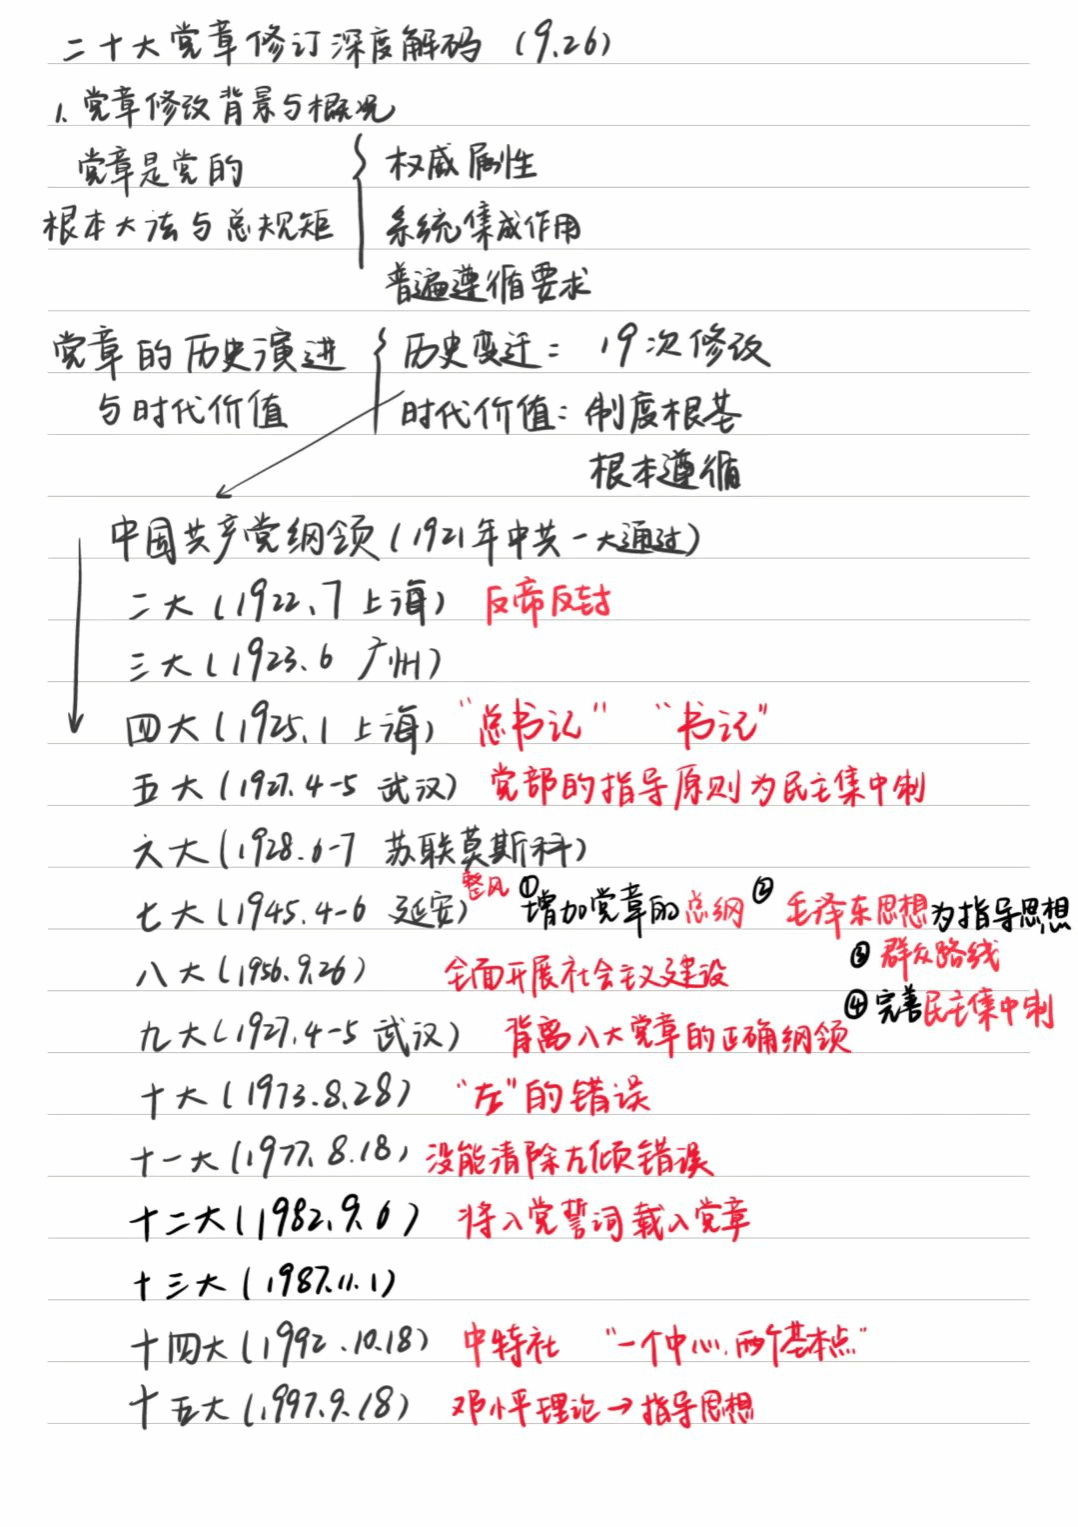 二十大党章修订深度解码 (9.26)
1. 党章修改背景与概况
党章是党的
根本大法与总规矩
权威属性
系统集成作用
普遍遵循要求
党章的历史演进
与时代价值
历史变迁: 19次修改
时代价值: 制度根基
根本遵循
中国共产党纲领 (1921年中共一大通过)
二大 (1922.7 上海) 反帝反封
三大 (1923.6 广州)
四大 (1925.1 上海) "总书记" "书记"
五大 (1927.4-5 武汉) 党部的指导原则为民主集中制
六大 (1928.6-7 苏联莫斯科)
七大 (1945.4-6 延安) 整风 ①增加党章的总纲 ② 毛泽东思想为指导思想
③ 群众路线
④ 完善民主集中制
八大 (1956.9.26) 全面开展社会主义建设
九大 (1927.4-5 武汉) 背离八大党章的正确纲领
十大 (1973.8.28) "左"的错误
十一大 (1977.8.18) 没能清除左倾错误
十二大 (1982.9.6) 将入党誓词载入党章
十三大 (1987.11.1)
十四大 (1992.10.18) 中特社 "一个中心,两个基本点"
十五大 (1997.9.18) 邓小平理论→指导思想